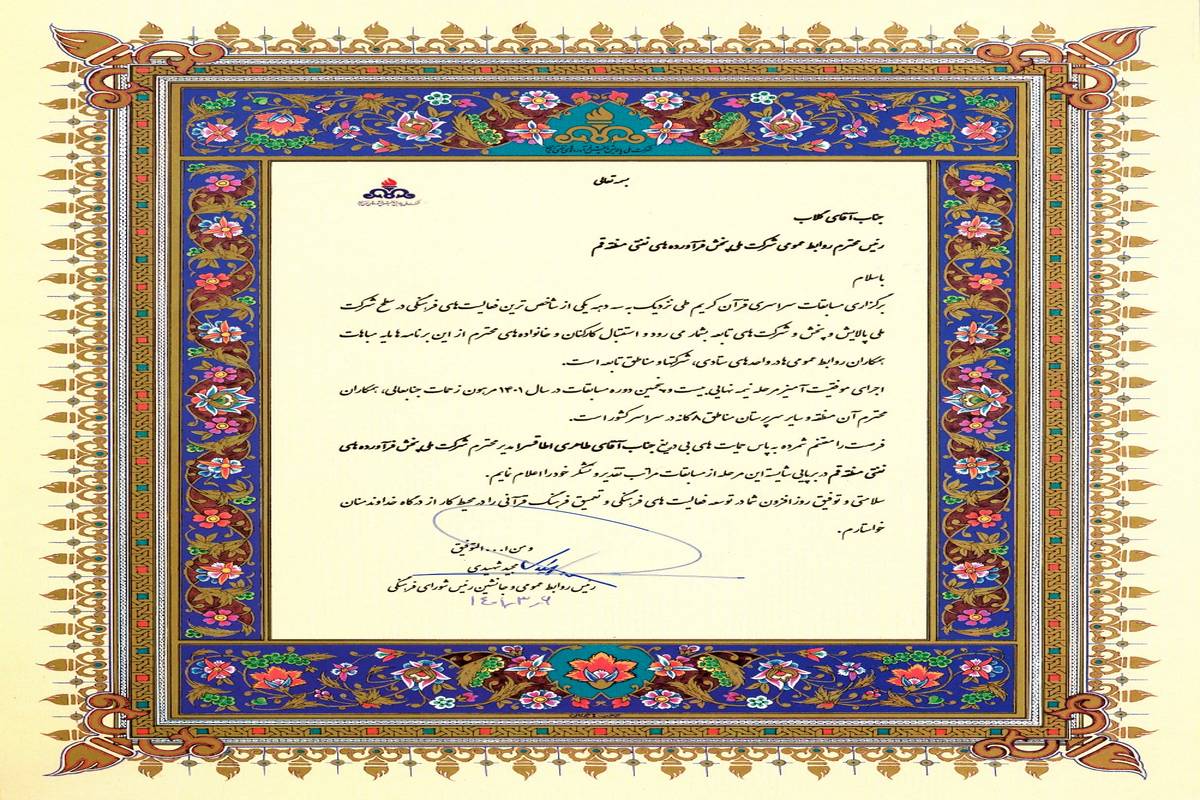 بسمه تعالی
جناب آقای گلاب
رئیس محترم روابط عمومی شرکت ملی پخش فرآورده های نفتی منطقه قم
با سلام
برگزاری مسابقات سراسری قرآن کریم طی نزدیک به سه دهه یکی از شاخص ترین فعالیت های فرهنگی در سطح شرکت
ملی پالایش و پخش و شرکت های تابعه بشمار می رود و استقبال کارکنان و خانواده های محترم از این برنامه ها مایه مباهات
همکاران روابط عمومی ها در واحدهای ستادی، شرکتها و مناطق تابعه است.
اجرای موفقیت آمیز مرحله نیمه نهایی بیست و پنجمین دوره مسابقات در سال ۱۴۰۱ مرهون زحمات جنابعالی، همکاران
محترم آن منطقه و سایر سرپرستان مناطق ۸ گانه در سراسر کشور است.
فرصت را مغتنم شمرده به پاس حمایت های بی دریغ جناب آقای طاهری اطاقسرا مدیر محترم شرکت ملی پخش فرآورده های
نفتی منطقه قم در برپایی شایسته این مرحله از مسابقات مراتب تقدیر و تشکر خود را اعلام نمایم.
سلامتی و توفیق روزافزون شما در توسعه فعالیت های فرهنگی و تعمیق فرهنگ قرآنی را در محیط کار از درگاه خداوند منان
خواستارم.
و من ا... التوفیق
مجید شهیدی
رئیس روابط عمومی و جانشین رئیس شورای فرهنگی